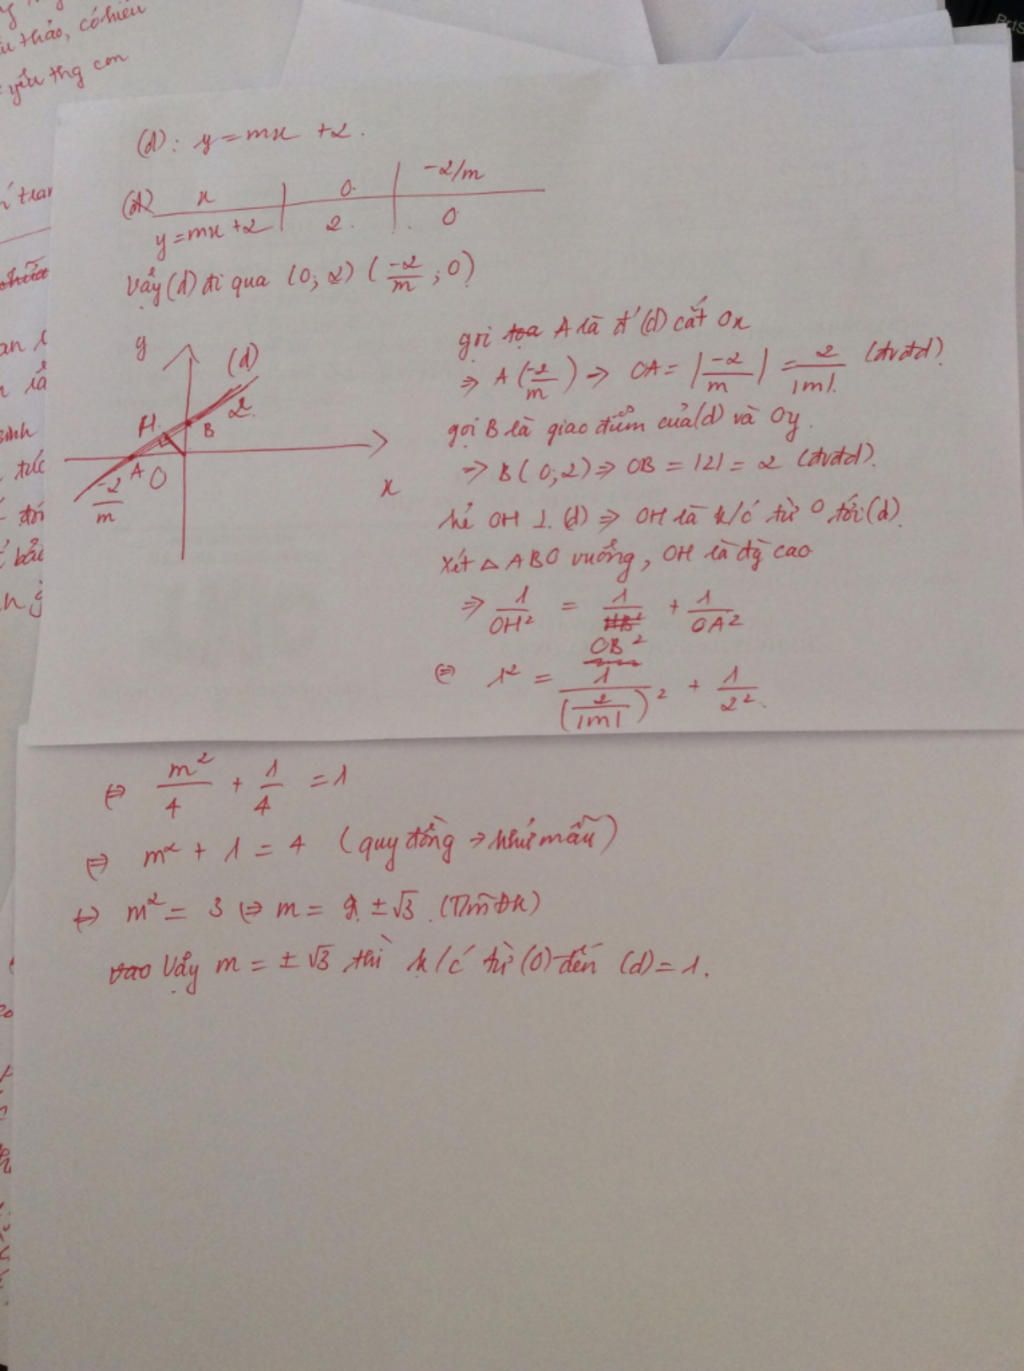 ếu thảo, có hiếu
yếu thg con
(d): y = mx + 2.
(d) x | 0 | -2/m
y = mx + 2 | 2. | 0
Vậy (d) đi qua (0; 2) (-2/m ; 0)
y
(d)
2
H
B
A O
-2/m
x
gọi toạ A là đ' (d) cắt Ox
⇒ A (-2/m) → OA = |-2/m| = 2/|m| (đvđd)
gọi B là giao điểm của (d) và Oy.
→ B (0; 2) ⇒ OB = |2| = 2 (đvđd).
kẻ OH ⊥ (d) ⇒ OH là k/c từ O tới (d).
Xét △ ABO vuông, OH là đg cao
⇒ 1/OH² = 1/OB² + 1/OA²
⇔ 1² = 1/(2/|m|)² + 1/2².
⇔ m²/4 + 1/4 = 1
⇔ m² + 1 = 4 (quy đồng → khử mẫu)
↔ m² = 3 ⇔ m = ±√3 (TmĐk)
Vậy m = ±√3 thì k/c từ (O) đến (d) = 1.